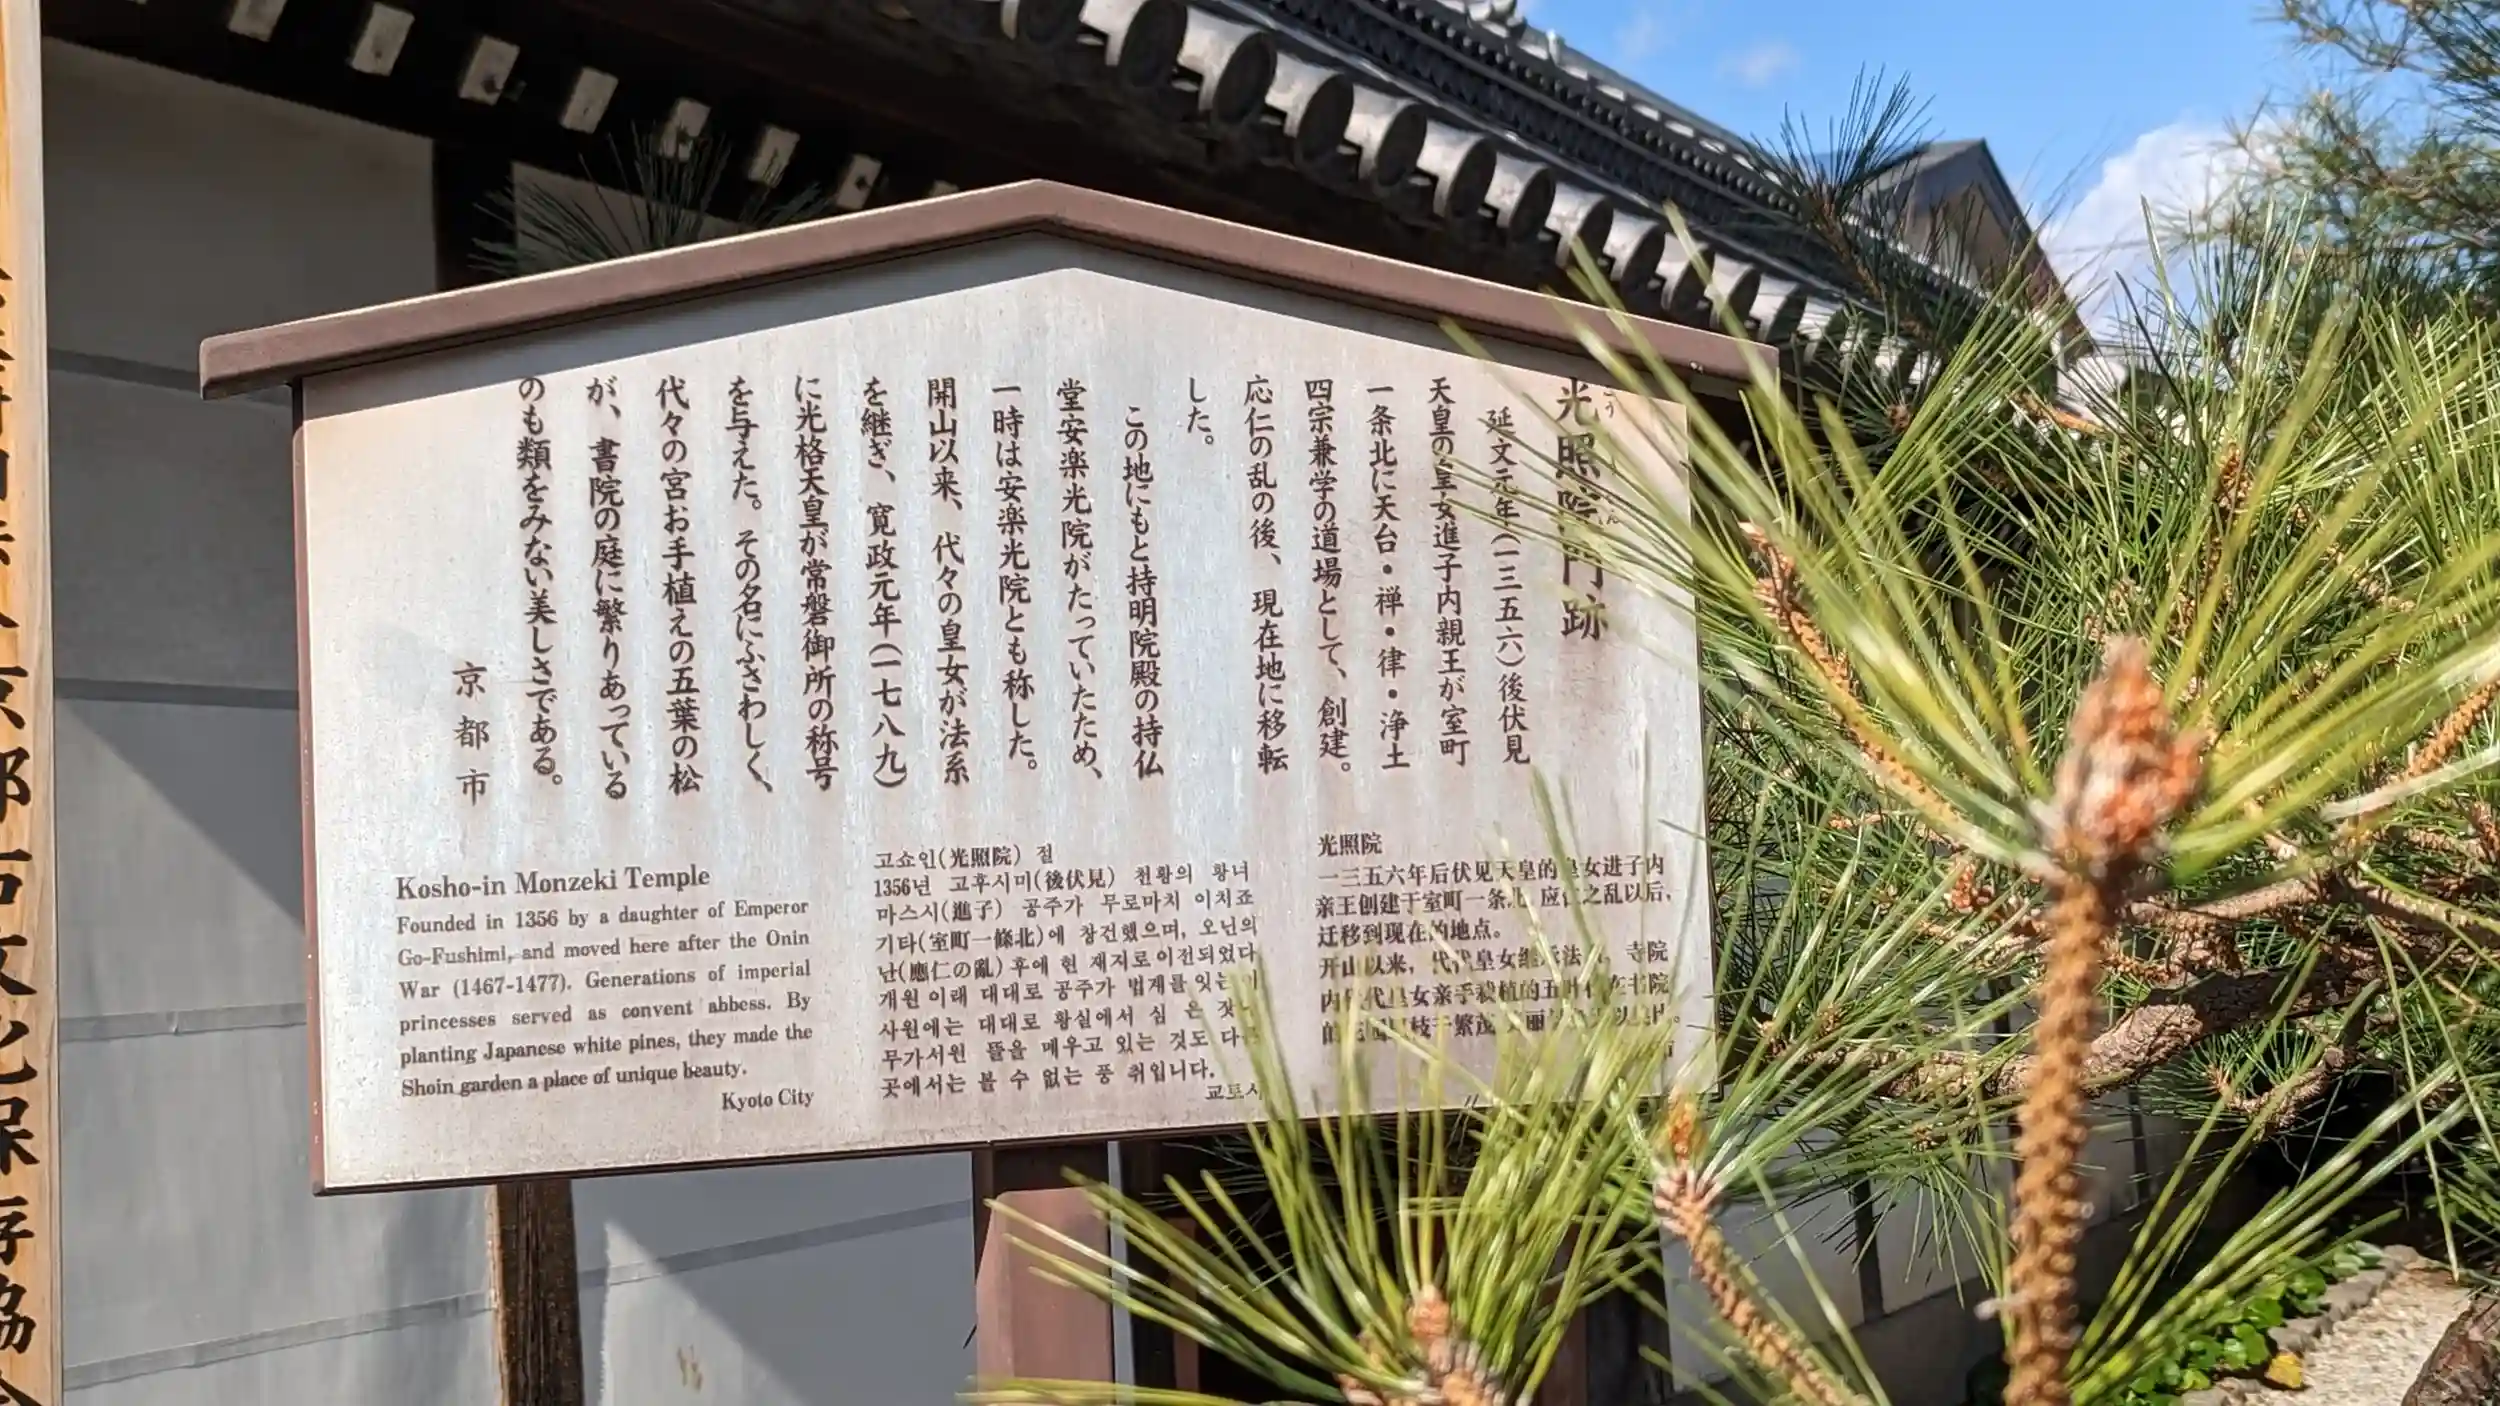 光照院門跡
延文元年(一三五六)後伏見
天皇の皇女進子内親王が室町
一条北に天台・禅・律・浄土
四宗兼学の道場として、創建。
応仁の乱の後、現在地に移転
した。
この地にもと持明院殿の持仏
堂安楽光院がたっていたため、
一時は安楽光院とも称した。
開山以来、代々の皇女が法系
を継ぎ、寛政元年(一七八九)
に光格天皇が常磐御所の称号
を与えた。その名にふさわしく、
代々の宮お手植えの五葉の松
が、書院の庭に繁りあっている
のも類をみない美しさである。
京都市
Kosho-in Monzeki Temple
Founded in 1356 by a daughter of Emperor
Go-Fushimi, and moved here after the Onin
War (1467-1477). Generations of imperial
princesses served as convent abbess. By
planting Japanese white pines, they made the
Shoin garden a place of unique beauty.
Kyoto City
고쇼인(光照院) 절
1356년 고후시미(後伏見) 천황의 황녀
마스시(進子) 공주가 무로마치 이치죠
기타(室町一條北)에 창건했으며, 오닌의
난(應仁の亂)후에 현 재지로이전되었다
개원이래 대대로 공주가 법계를 잇는
사원에는 대대로 황실에서 심 은 잣
무가서원 뜰을 메우고 있는 것도 다
곳에서는 볼 수 없는 풍 취입니다.
교토시
光照院
一三五六年后伏见天皇的皇女进子内
亲王创建于室町一条北 应仁之乱以后,
迁移到现在的地点。
开山以来, 代代皇女继 法 寺院
内 代皇女亲手栽植的五叶 在书院
的 枝干繁茂 丽
京都市
京都古文化保存協会